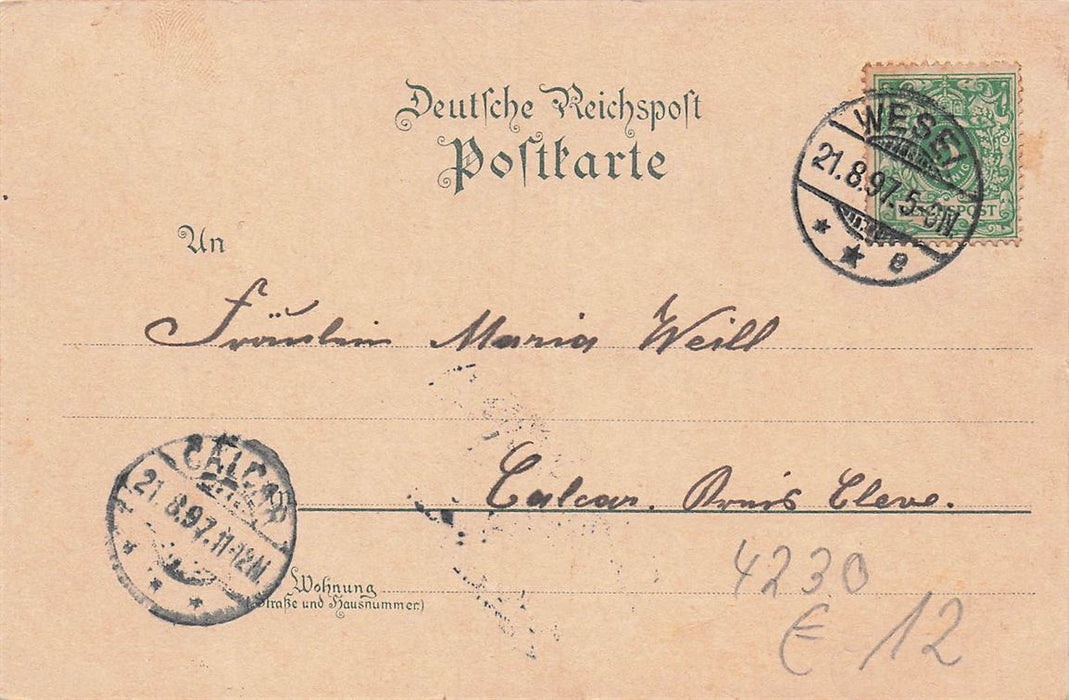 Deutsche Reichspost
Postkarte
WESEL
21.8.97.5-6N.
* * e
REICHSPOST
An
Fräulein Maria Weill
Calcar. Kreis Cleve.
CALCAR
21.8.97.11-12N
* * *
Wohnung
(Straße und Hausnummer)
4230
€ 12